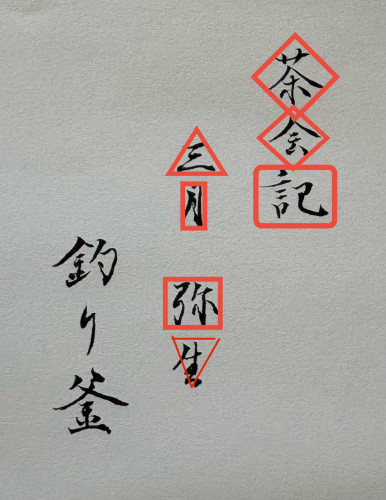 茶会記
三月 弥生
釣り釜